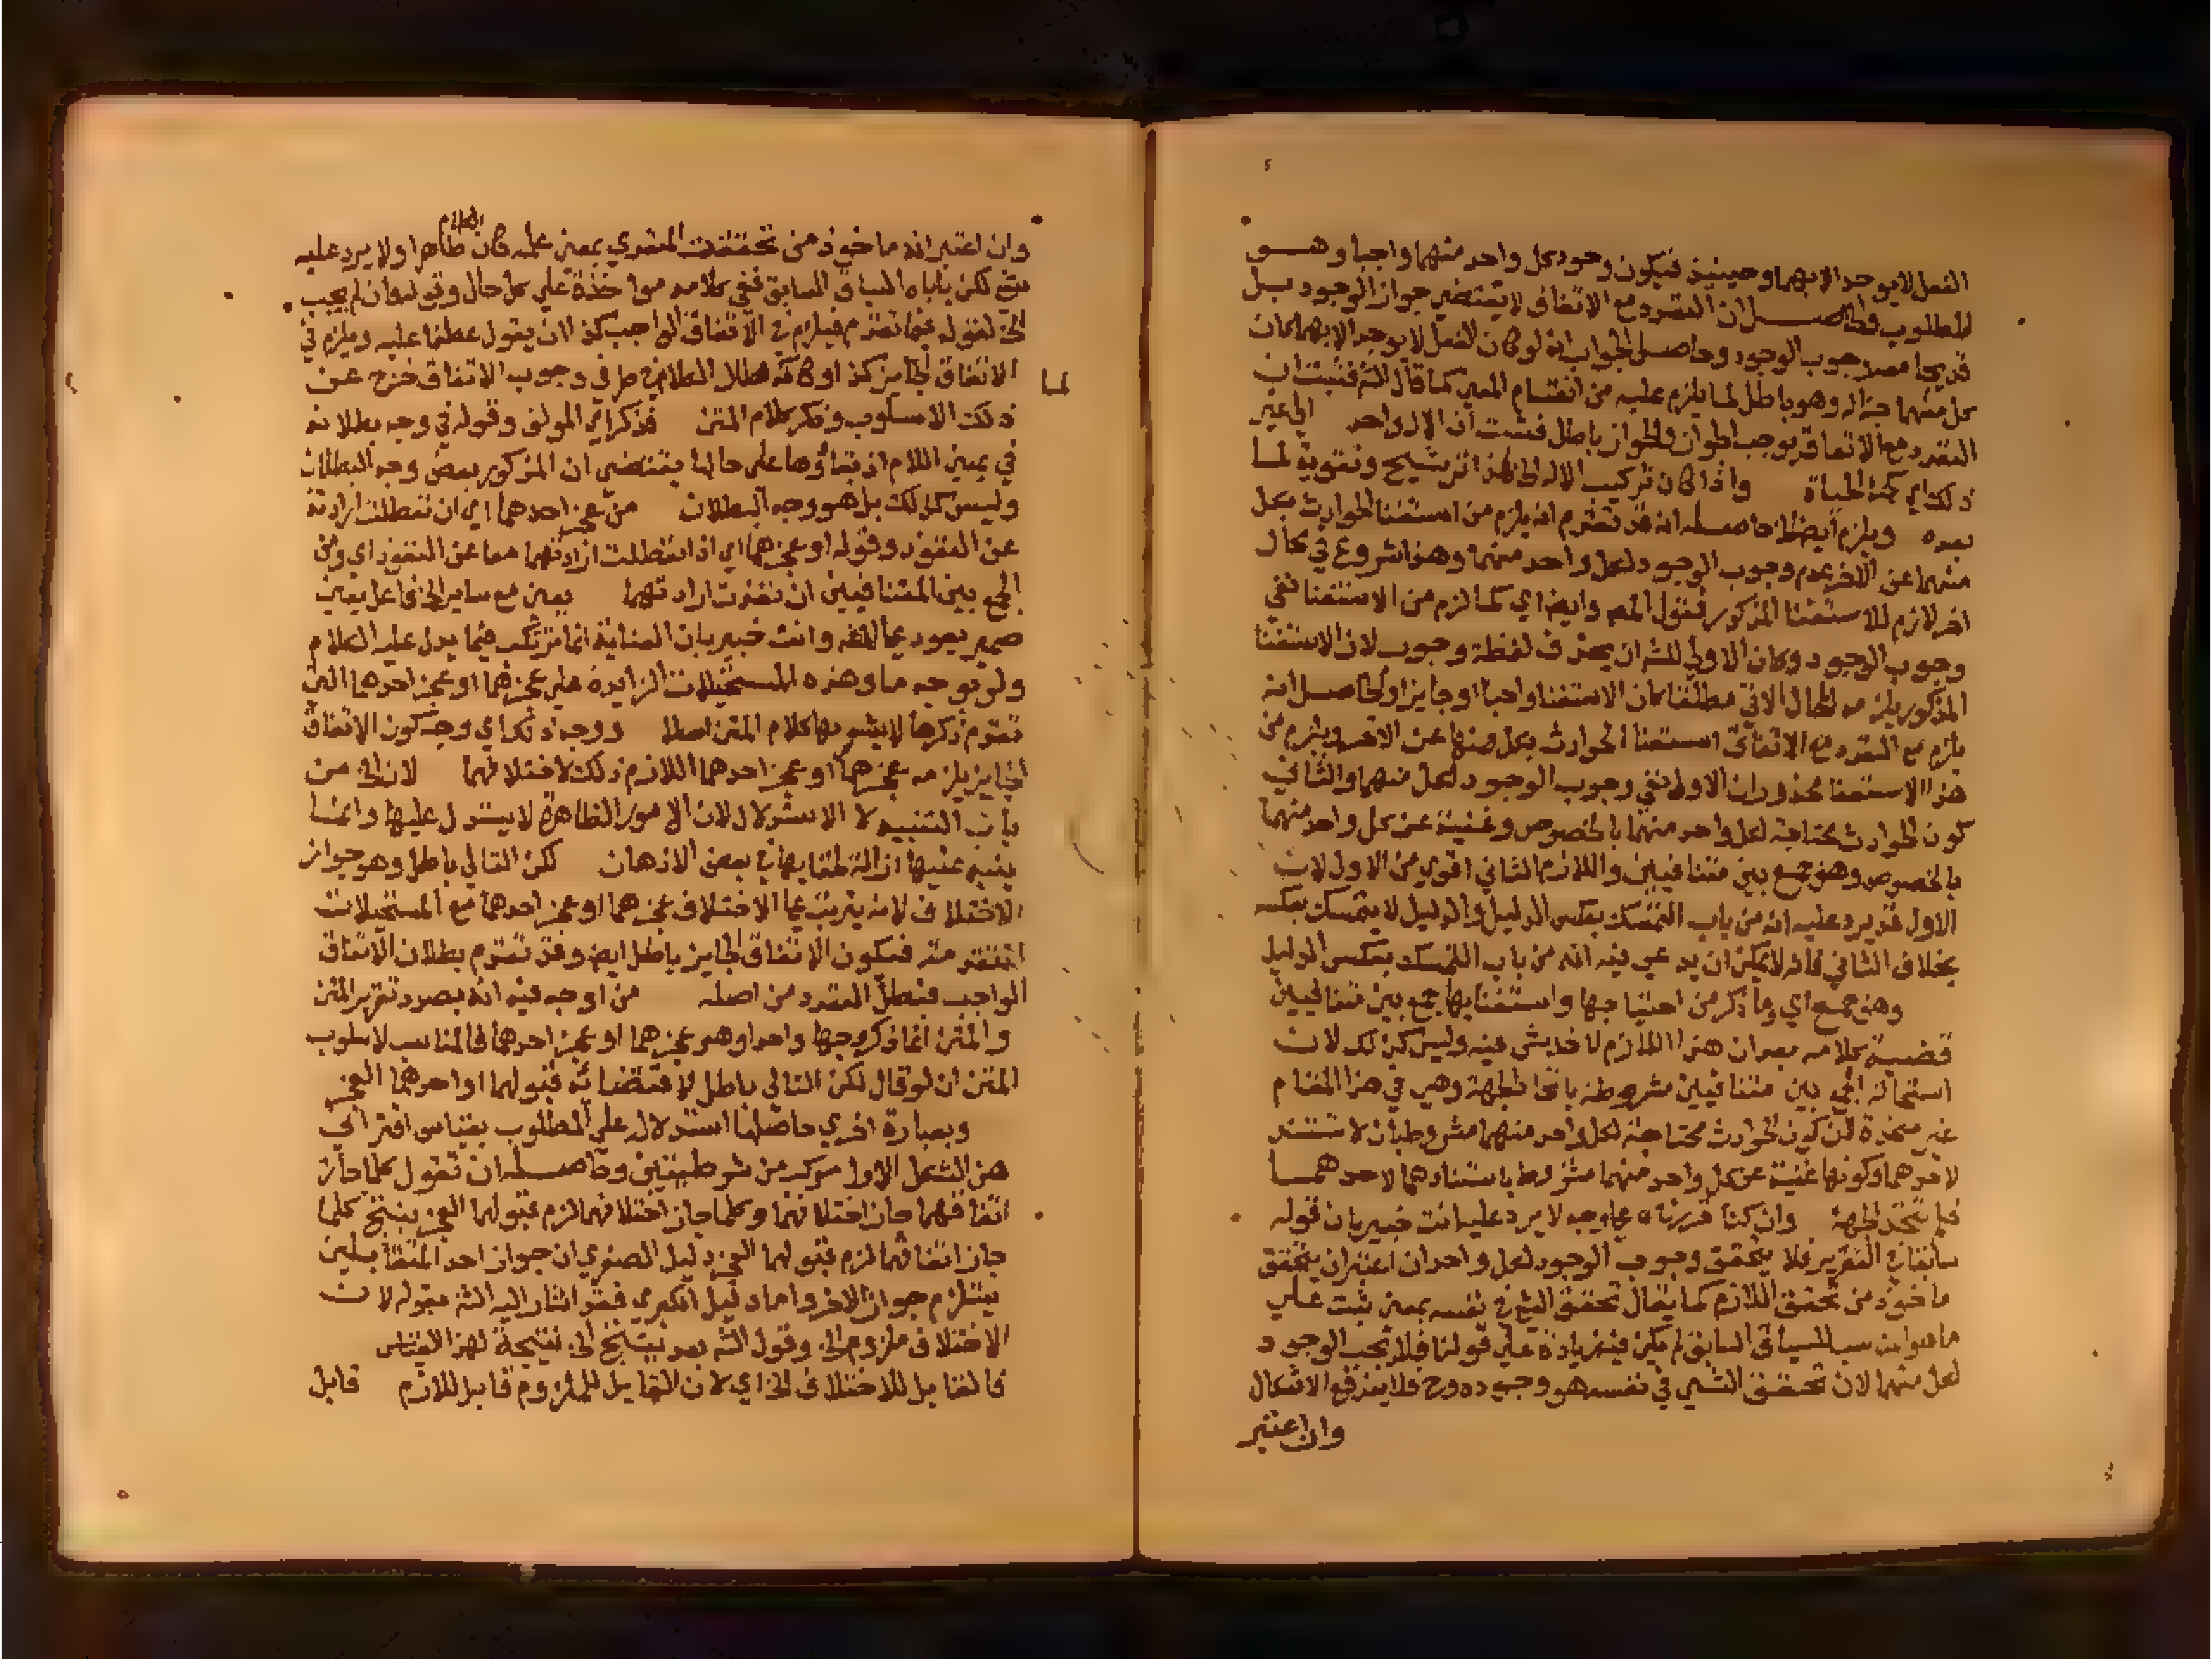 الفعل لا يوجد الا بهما وحينيذ فيكون وجود كل واحد منهما واجبا وهو
المطلوب فحاصل ان التعدد مع الاتفاق لا يقتضي جواز الوجود بل
وجوب الوجود وحاصل الجواب انه لو كان الفعل لا يوجد الا بهما كان
كل منهما جزاله وهو باطل لما يلزم عليه من انقسام كما قال الشه فثبت ان
التعدد مع الاتفاق يوجب الجواز والجواز باطل فثبت ان الاله واحد الى غير
ذلك اي كالحياة واذا كان تركيب الاله الخ هذا ترشيح وتقوية لما
بعده ويلزم ايضا الخ حاصله انه قد تقدم انه يلزم من استغنا الحوادث بكل
منهما عن الاخر عدم وجوب الوجود لكل واحد منهما وهذا شروع في محال
اخر لازم للاستغنا المذكور فقول المص وايضا اي كما لزم من الاستغنا نفي
وجوب الوجود وكان الاولى للشه ان يحذف لفظة وجوب لان الاستغنا
المذكور يلزمه المحال الاتي مطلقا كان الاستغنا واجبا او جايزا والحاصل انه
يلزم مع التعدد مع الاتفاق استغنا الحوادث بكل منهما عن الاخر ويلزم من
هذا الاستغنا محذوران الاول نفي وجوب الوجود لكل منهما والثاني
كون الحوادث محتاجة لكل واحد منهما بالخصوص وغنية عن كل واحد منهما
بالخصوص وهو جمع بين متنافيين واللازم الثاني اقوى من الاول لان
الاول قد يرد عليه انه من باب التمسك بعكس الدليل والدليل لا يتمسك بعكسه
بخلاف الثاني فانه لا يمكن ان يدعي فيه انه من باب التمسك بعكس الدليل
وهو جمع اي وما ذكر من احتياجها واستغنايها جمع بين متنافيين
قضية كلامه بعد ان هذا اللازم لا خدش فيه وليس كذلك لان
استحالة الجمع بين متنافيين مشروطة باتحاد الجهة وهي في هذا المقام
غير متحدة لان كون الحوادث محتاجة لكل واحد منهما مشروط بان لا تستند
لاخرهما وكونها غنية عن كل واحد منهما مشروط باستنادها لاحدهما
فلم تتحد الجهة وان كنا قررناه على وجه لا يرد عليه انت خبير بان قوله
سابقا في التقرير فلا يتحقق وجوب الوجود لكل واحد ان اعتبر ان يتحقق
ماخوذ من تحقق اللازم كما يقال تحقق الشي في نفسه بمعنى ثبت على
ما هو المناسب للسياق السابق لم يكن فيه زيادة على قولنا فلا يجب الوجود
لكل منهما لان تحقق الشي في نفسه هو وجوده وح فلا يندفع الاشكال
وان اعتبر
وان اعتبر انه ماخوذ من تحققت المتعدي بمعنى علمه كان الكلام ظاهرا ولا يرد عليه
شي لكن ياباه السياق السابق ففي كلامه مواخذة على كل حال وقوله وان لم يجب
الخ لقوله فيما تقدم فيلزم في الاتفاق الواجب كذا ان يقول عطفا عليه ويلزم في
الاتفاق الجايز كذا وكانه لما طال الكلام في وجوب الاتفاق خرج عن
لما
ذلك الاسلوب وذكر كلام المتن فذكر اي المولف وقوله في وجه بطلانه
في بمعنى اللام اذ بقاوها على حالها يقتضي ان المذكور بعض وجه البطلان
وليس كذلك بل هو وجه البطلان من عجز احدهما اي ان تعطلت ارادته
عن النفوذ وقوله او عجزهما اي اذا تعطلت ارادتهما معا عن النفوذ اي ومن
الجمع بين المتنافيين ان نفذت ارادتهما يعين مع ساير الخ فاعل يعين
ضمير يعود على المص وانت خبير بان العناية انما ترتكب فيما يدل عليه الكلام
ولو بوجه ما وهذه المستحيلات الزايدة على عجزهما او عجز احدهما التي
تقدم ذكرها لا يشعر بها كلام المتن اصلا ووجه ذلك اي وجه كون الاتفاق
الجايز يلزمه عجزهما او عجز احدهما اللازم ذلك لاختلافهما لان الخ من
باب التنبيه لا الاستدلال لان الامور الظاهرة لا يستدل عليها وانما
ينبه عليها ازالة لخفايها في بعض الاذهان لكن التالي باطل وهو جواز
الاختلاف لانه يترتب على الاختلاف عجزهما او عجز احدهما مع المستحيلات
المتقدمة فيكون الاتفاق الجايز باطل ايضا وقد تقدم بطلان الاتفاق
الواجب فبطل التعدد من اصله من اوجه فيه انه بصدد تقرير المتن
والمتن انما ذكر وجها واحدا وهو عجزهما او عجز احدهما فالمناسب لاسلوب
المتن ان لو قال لكن التالي باطل لاقتضايه قبولهما او احدهما العجز
وبعبارة اخري حاصلها استدلال على المطلوب بقياس اقتراني
من الشكل الاول مركب من شرطيتين وحاصله ان تقول كلما جاز
اتفاقهما جاز اختلافهما وكلما جاز اختلافهما لزم قبولهما العجز ينتج كلما
جاز اتفاقهما لزم قبولهما العجز دليل الصغرى ان جواز احد المتقابلين
يستلزم جواز الاخر واما دليل الكبرى فقد اشار اليه الشه بقوله لان
الاختلاف ملزوم الخ وقول الشه بعد ينتج الخ نتيجة لهذا القياس
فالقابل للاختلاف الخ اي لان القابل للملزوم قابل للازم قابل